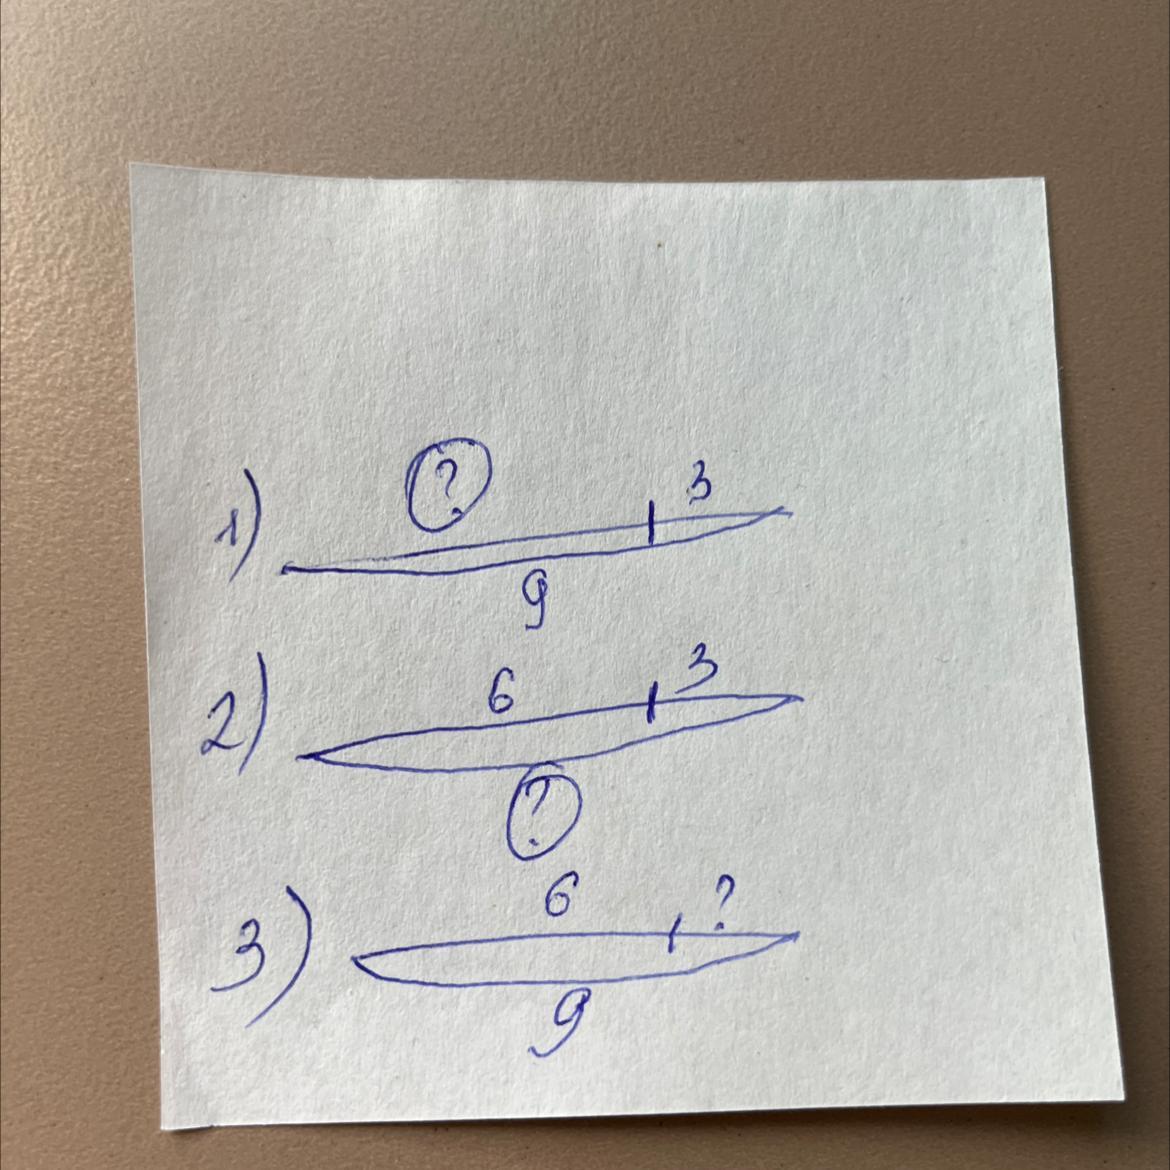 1) ? 3
9
2) 6 3
?
3) 6 ?
9